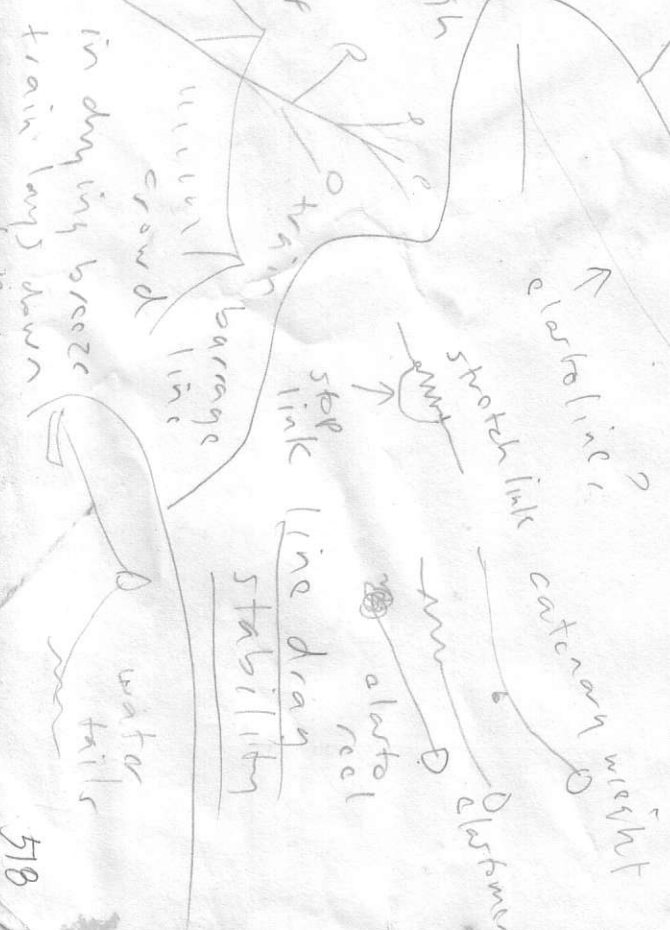 elasto line?
catenary weight
stretch link
elastome
gh
stop
link
elasto
reel
line drag
stability
train
barrage
line
crowd
water
tails
in dying breeze
train lays down
518